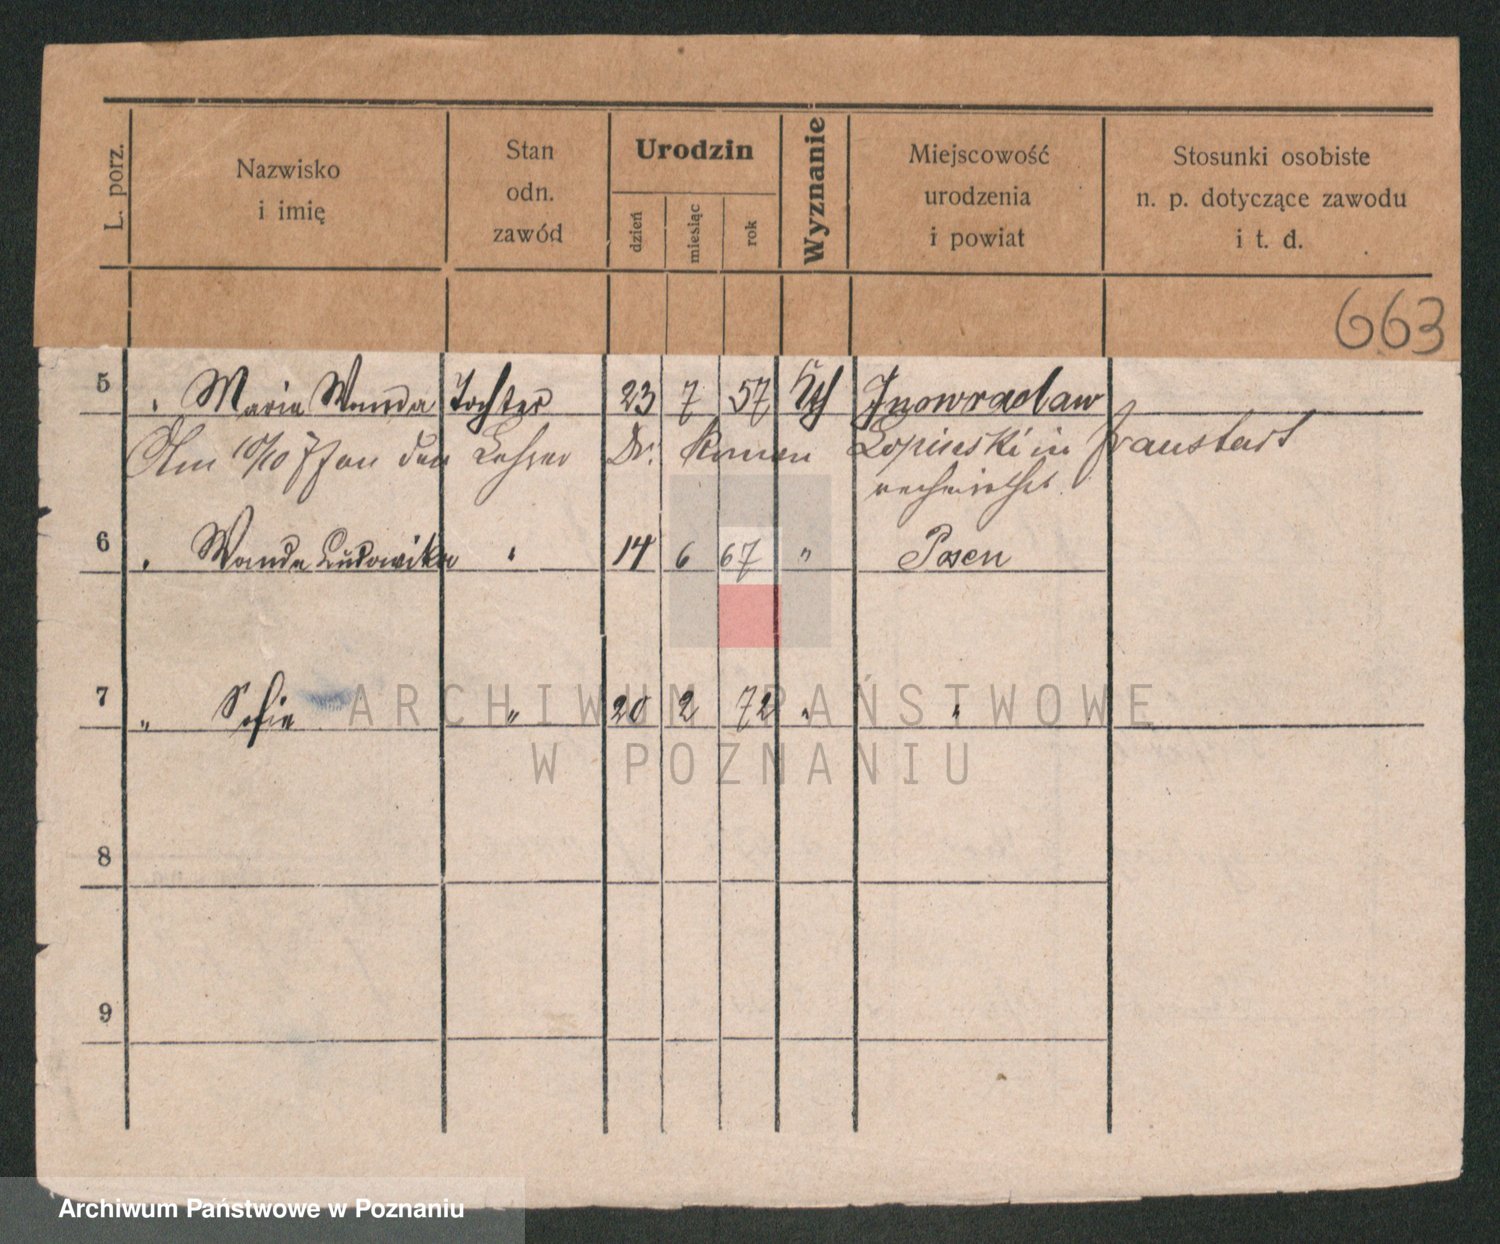 L. porz.
Nazwisko
i imię
Stan
odn.
zawód
Urodzin
dzień
miesiąc
rok
Wyznanie
Miejscowość
urodzenia
i powiat
Stosunki osobiste
n. p. dotyczące zawodu
i t. d.
663
5 Maria Wanda Tochter 23 7 57 Kth Inowraclaw
Am 10/10 an den Lehrer Dr. Roman Lopinski in Fraustadt
verheirathet.
6 " Wanda Ludowika " 14 6 67 " Posen
7 " Sofie " 20 2 72 " "
8
9
ARCHIWUM PAŃSTWOWE
W POZNANIU
Archiwum Państwowe w Poznaniu